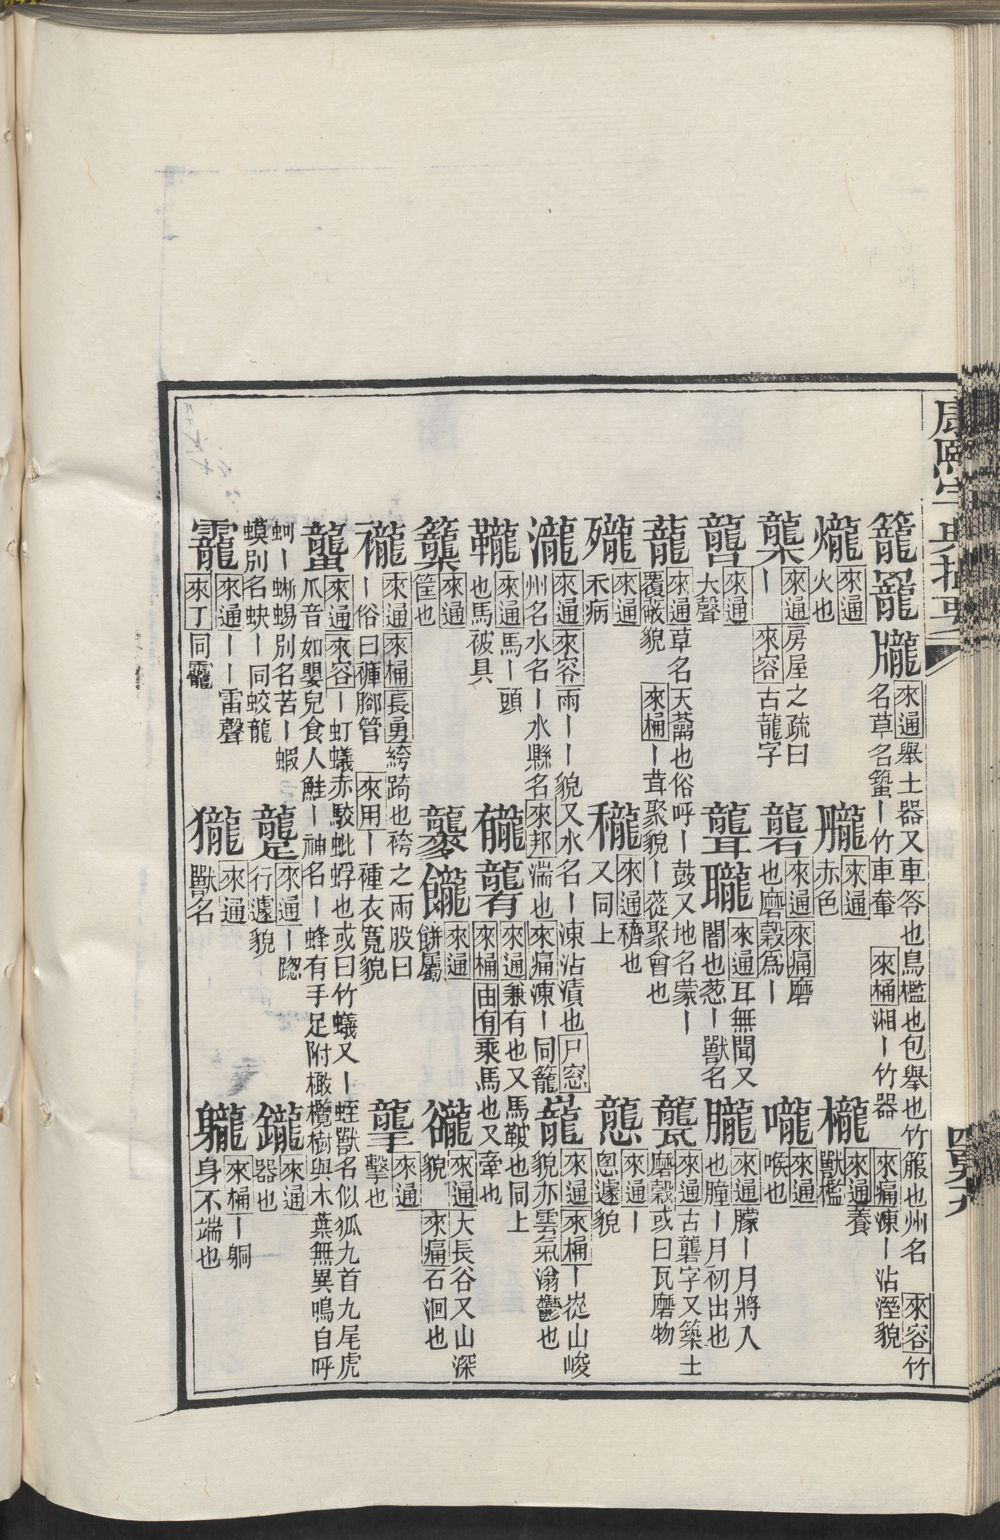 康熙字典撮要
四百九九
籠𥵡朧 來通舉土器又車笭也鳥檻也包舉也竹箙也州名 來容竹
名草名䖟ー竹車軬 來桶湘ー竹器 來痛涷ー沾溼貌
爖 來通火也
𦪽 來通赤色
櫳 來通養獸檻
槼 來通房屋之疏曰ー 來容古龍字
礱 來通來痛磨也磨穀爲ー
嚨 來通喉也
㰍 來通大聲
聾 來通耳無聞又闇也葱ー獸名
朧 來通朦ー月將入也朣ー月初出也
蘢 來通草名天蘥也俗呼ー鼓又地名蒙ー覆蔽貌 來桶ー茸聚貌ー蓯聚會也
㼅 來通古礱字又築土礳穀或曰瓦磨物
㱯 來通禾病
穲 來通穧也又同上
㦕 來通ー悤遽貌
瀧 來通來容雨ーー貌又水名ー涷沾漬也尸窓州名水名ー水縣名來邦湍也來痛涷ー同籠
巃 來通來桶ー嵸山峻貌亦雲氣滃鬱也
鞴 來通馬ー頭也馬被具
龓 來通兼有也又馬鞁也同上來桶由有乘馬也又牽也
籠 來通筐也
䴡 來通餅屬
谾 來通大長谷又山深貌 來痛石洄也
襱 來通來桶長勇絝踦也袴之兩股曰ー俗曰褲腳管 來用ー種衣寬貌
㰍 來通擊也
蠪 來通來容ー虰蟻赤駮蚍蜉也或曰竹蟻又ー蛭獸名似狐九首九尾虎
爪音如嬰兒食人鮭ー神名ー蜂有手足附橄欖樹與木葉無異鳴自呼
蚵ー蜥蜴別名苦ー蝦蟆別名蚗ー同蛟龍
躘 來通ー踨行遽貌
鑨 來通器也
靇 來通ーー雷聲來丁同靇
㺜 來通獸名
軉 來桶ー躴身不端也